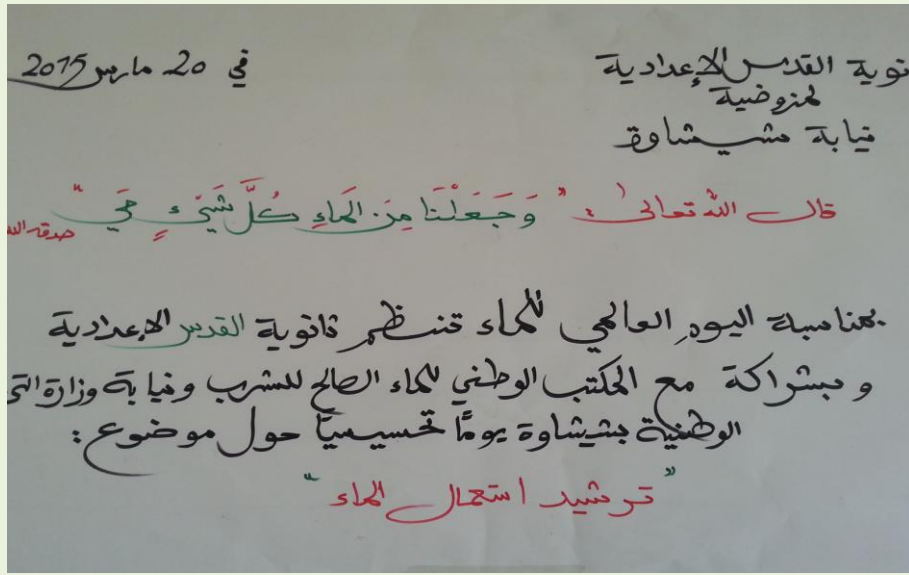 نوية القدس الإعدادية في 20 مارس 2015
لمزوضية
نيابة شيشاوة
قال الله تعالى: "وَجَعَلْنَا مِنَ الْمَاءِ كُلَّ شَيْءٍ حَي" صدق الله
بمناسبة اليوم العالمي للماء تنظم ثانوية القدس الإعدادية
وبشراكة مع المكتب الوطني للماء الصالح للشرب ونيابة وزارة التر
الوطنية بشيشاوة يومًا تحسيسيًا حول موضوع:
"ترشيد استعمال الماء"